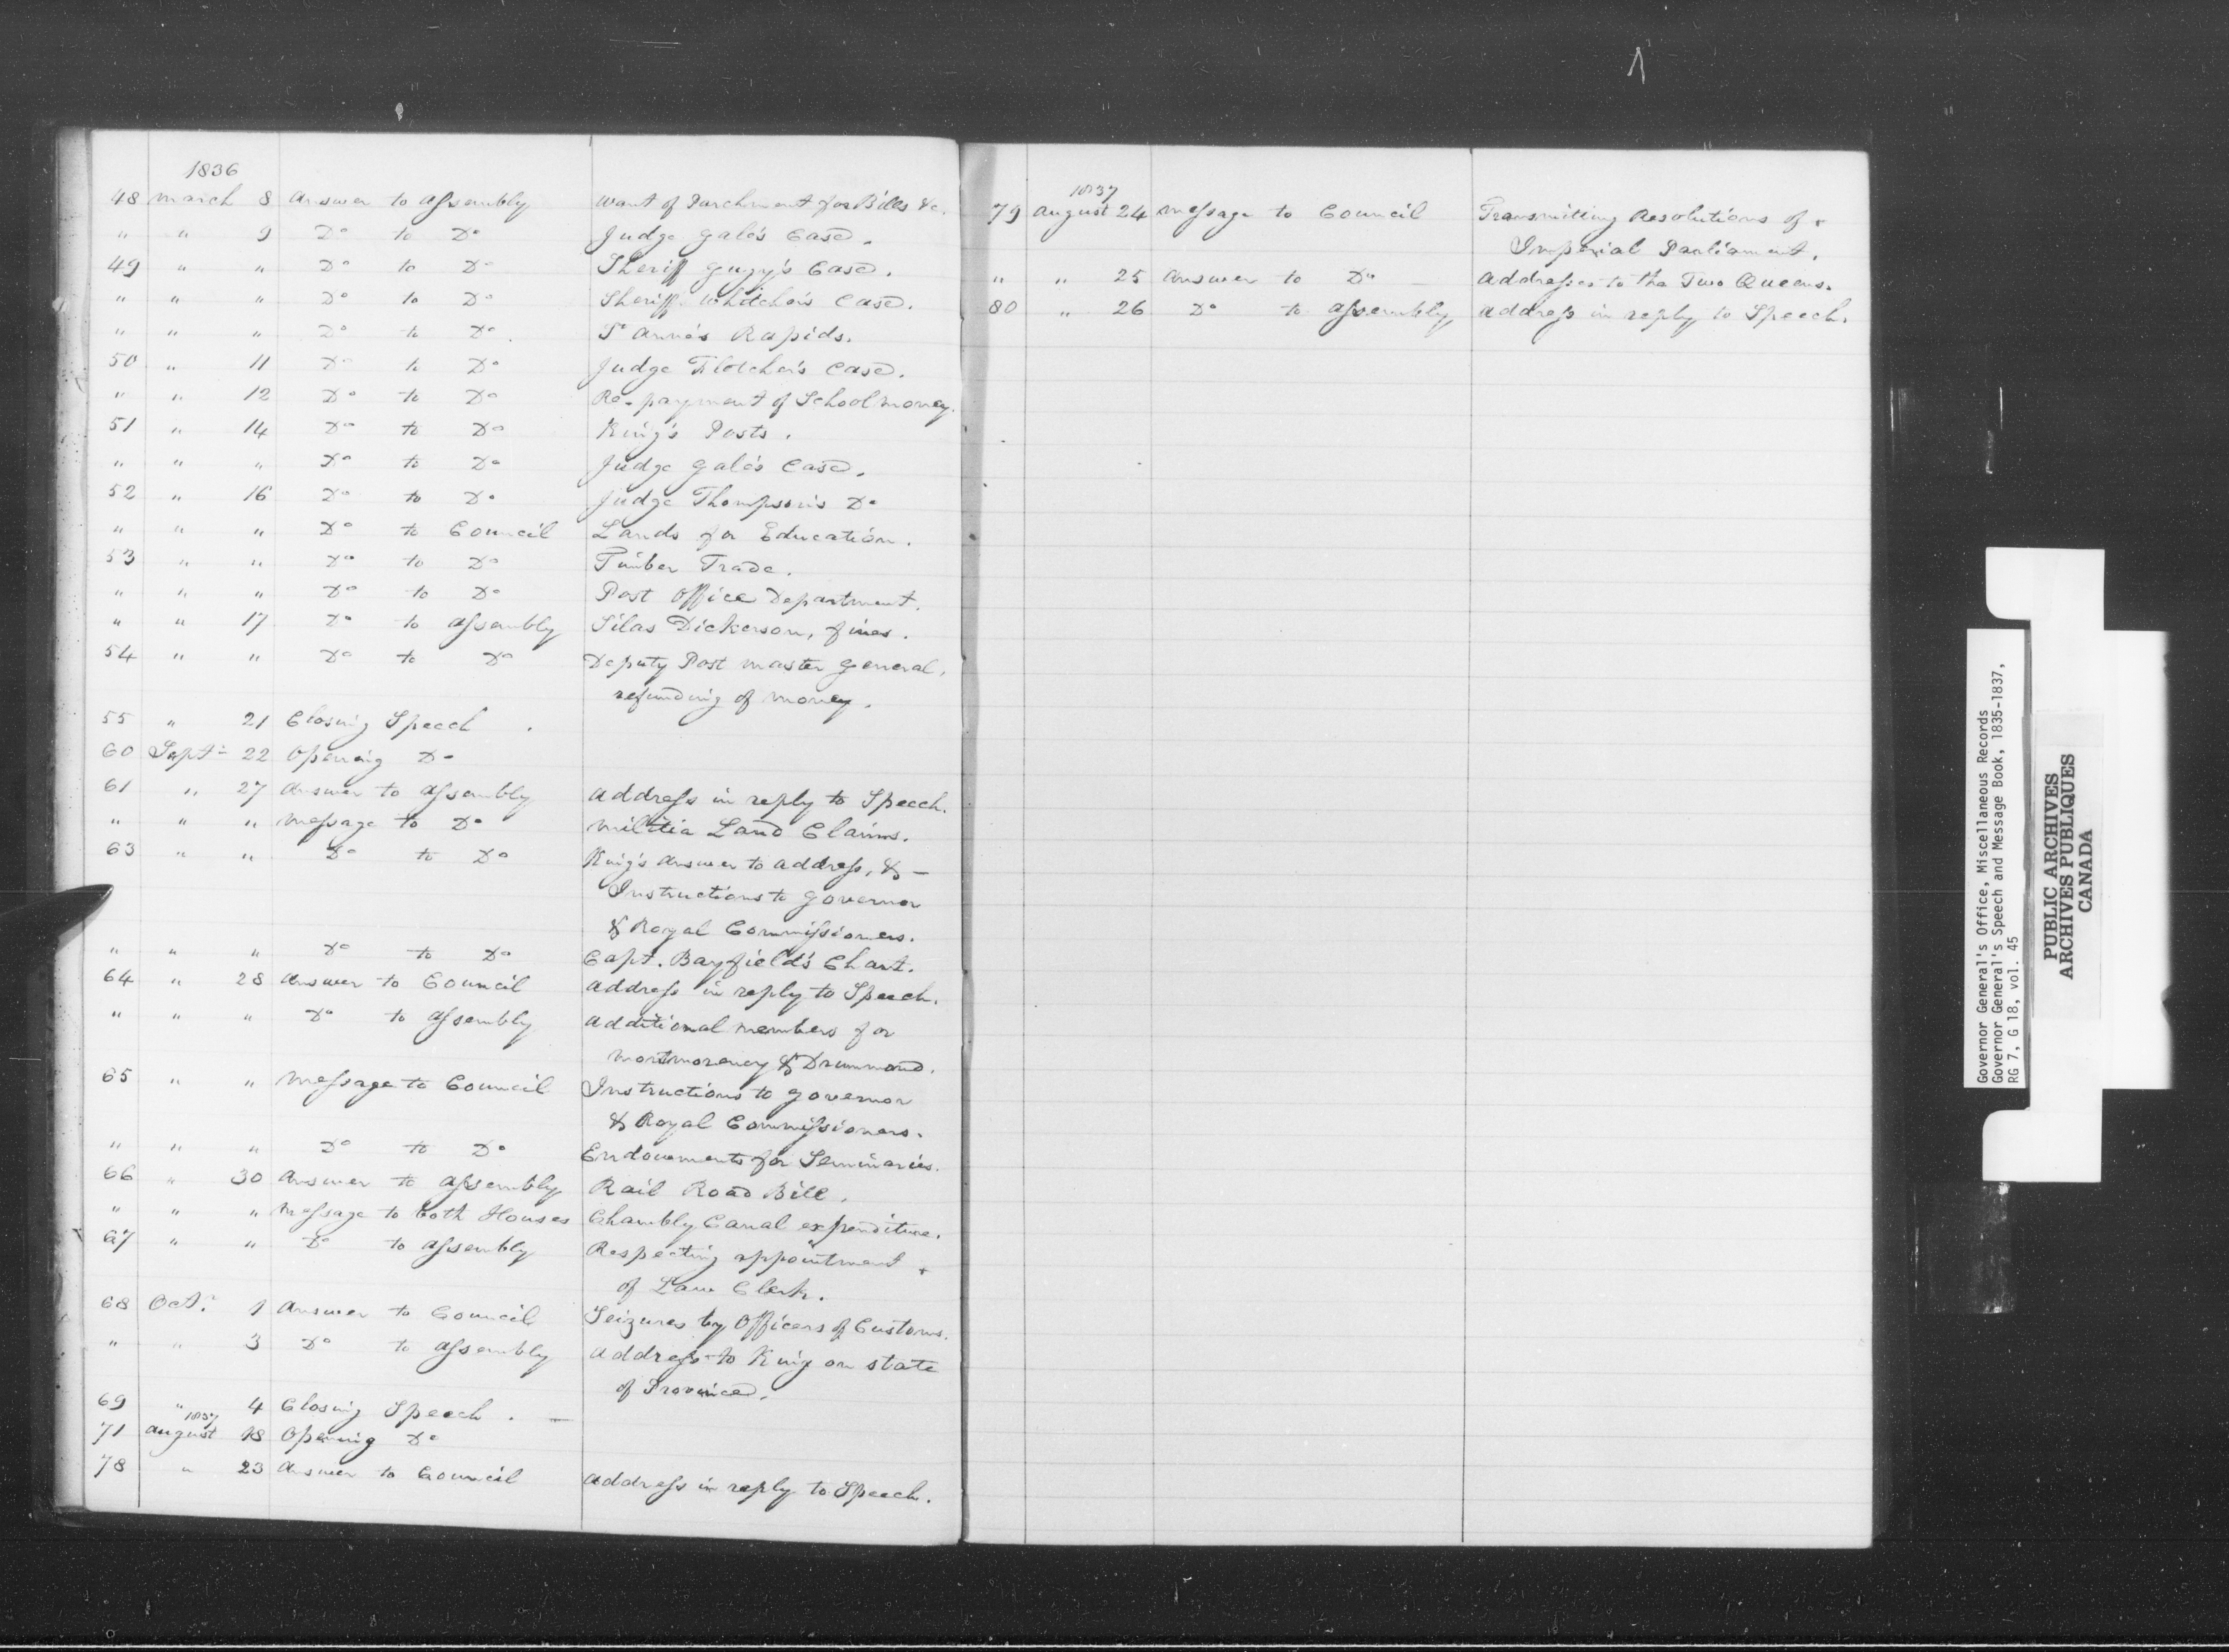 1836
48 March 8 Answer to Assembly Want of Parchment for Bills &c.
" " 9 Do to Do Judge Gale's Case.
49 " " Do to Do Sheriff Gugy's Case.
" " " Do to Do Sheriff Whitcher's Case.
" " " Do to Do. St Anne's Rapids.
50 " 11 Do to Do Judge Fletcher's Case.
" " 12 Do to Do Re-payment of School money.
51 " 14 Do to Do King's Posts.
" " " Do to Do Judge Gale's Case.
52 " 16 Do to Do Judge Thompson's Do
" " " Do to Council Lands for Education.
53 " " Do to Do Timber Trade.
" " " Do to Do Post Office Department.
" " 17 Do to Assembly Silas Dickerson, fines.
54 " " Do to Do Deputy Post Master General,
refunding of money.
55 " 21 Closing Speech.
60 Sept. 22 Opening Do
61 " 27 Answer to Assembly Address in reply to Speech.
" " " Message to Do Militia Land Claims.
63 " " Do to Do King's Answer to Address, & —
Instructions to Governor
& Royal Commissioners.
" " " Do to Do Capt. Bayfield's Chart.
64 " 28 Answer to Council Address in reply to Speech.
" " " Do to Assembly Additional members for
Montmorency & Drummond.
65 " " Message to Council Instructions to Governor
& Royal Commissioners.
" " " Do to Do Endowments for Seminaries.
66 " 30 Answer to Assembly Rail Road Bill.
" " " Message to both Houses Chambly Canal expenditure.
67 " " Do to Assembly Respecting appointment
of Law Clerk.
68 Octr. 1 Answer to Council Seizures by Officers of Customs.
" " 3 Do to Assembly Address to King on state
of Province.
69 " 4 Closing Speech. —
1837
71 August 18 Opening Do
78 " 23 Answer to Council Address in reply to Speech.
1837
79 August 24 Message to Council Transmitting Resolutions of
Imperial Parliament.
" " 25 Answer to Do — Addresses to the Two Queens.
80 " 26 Do to Assembly Address in reply to Speech.
Governor General's Office, Miscellaneous Records
Governor General's Speech and Message Book, 1835-1837,
RG 7, G 18, vol. 45
PUBLIC ARCHIVES
ARCHIVES PUBLIQUES
CANADA